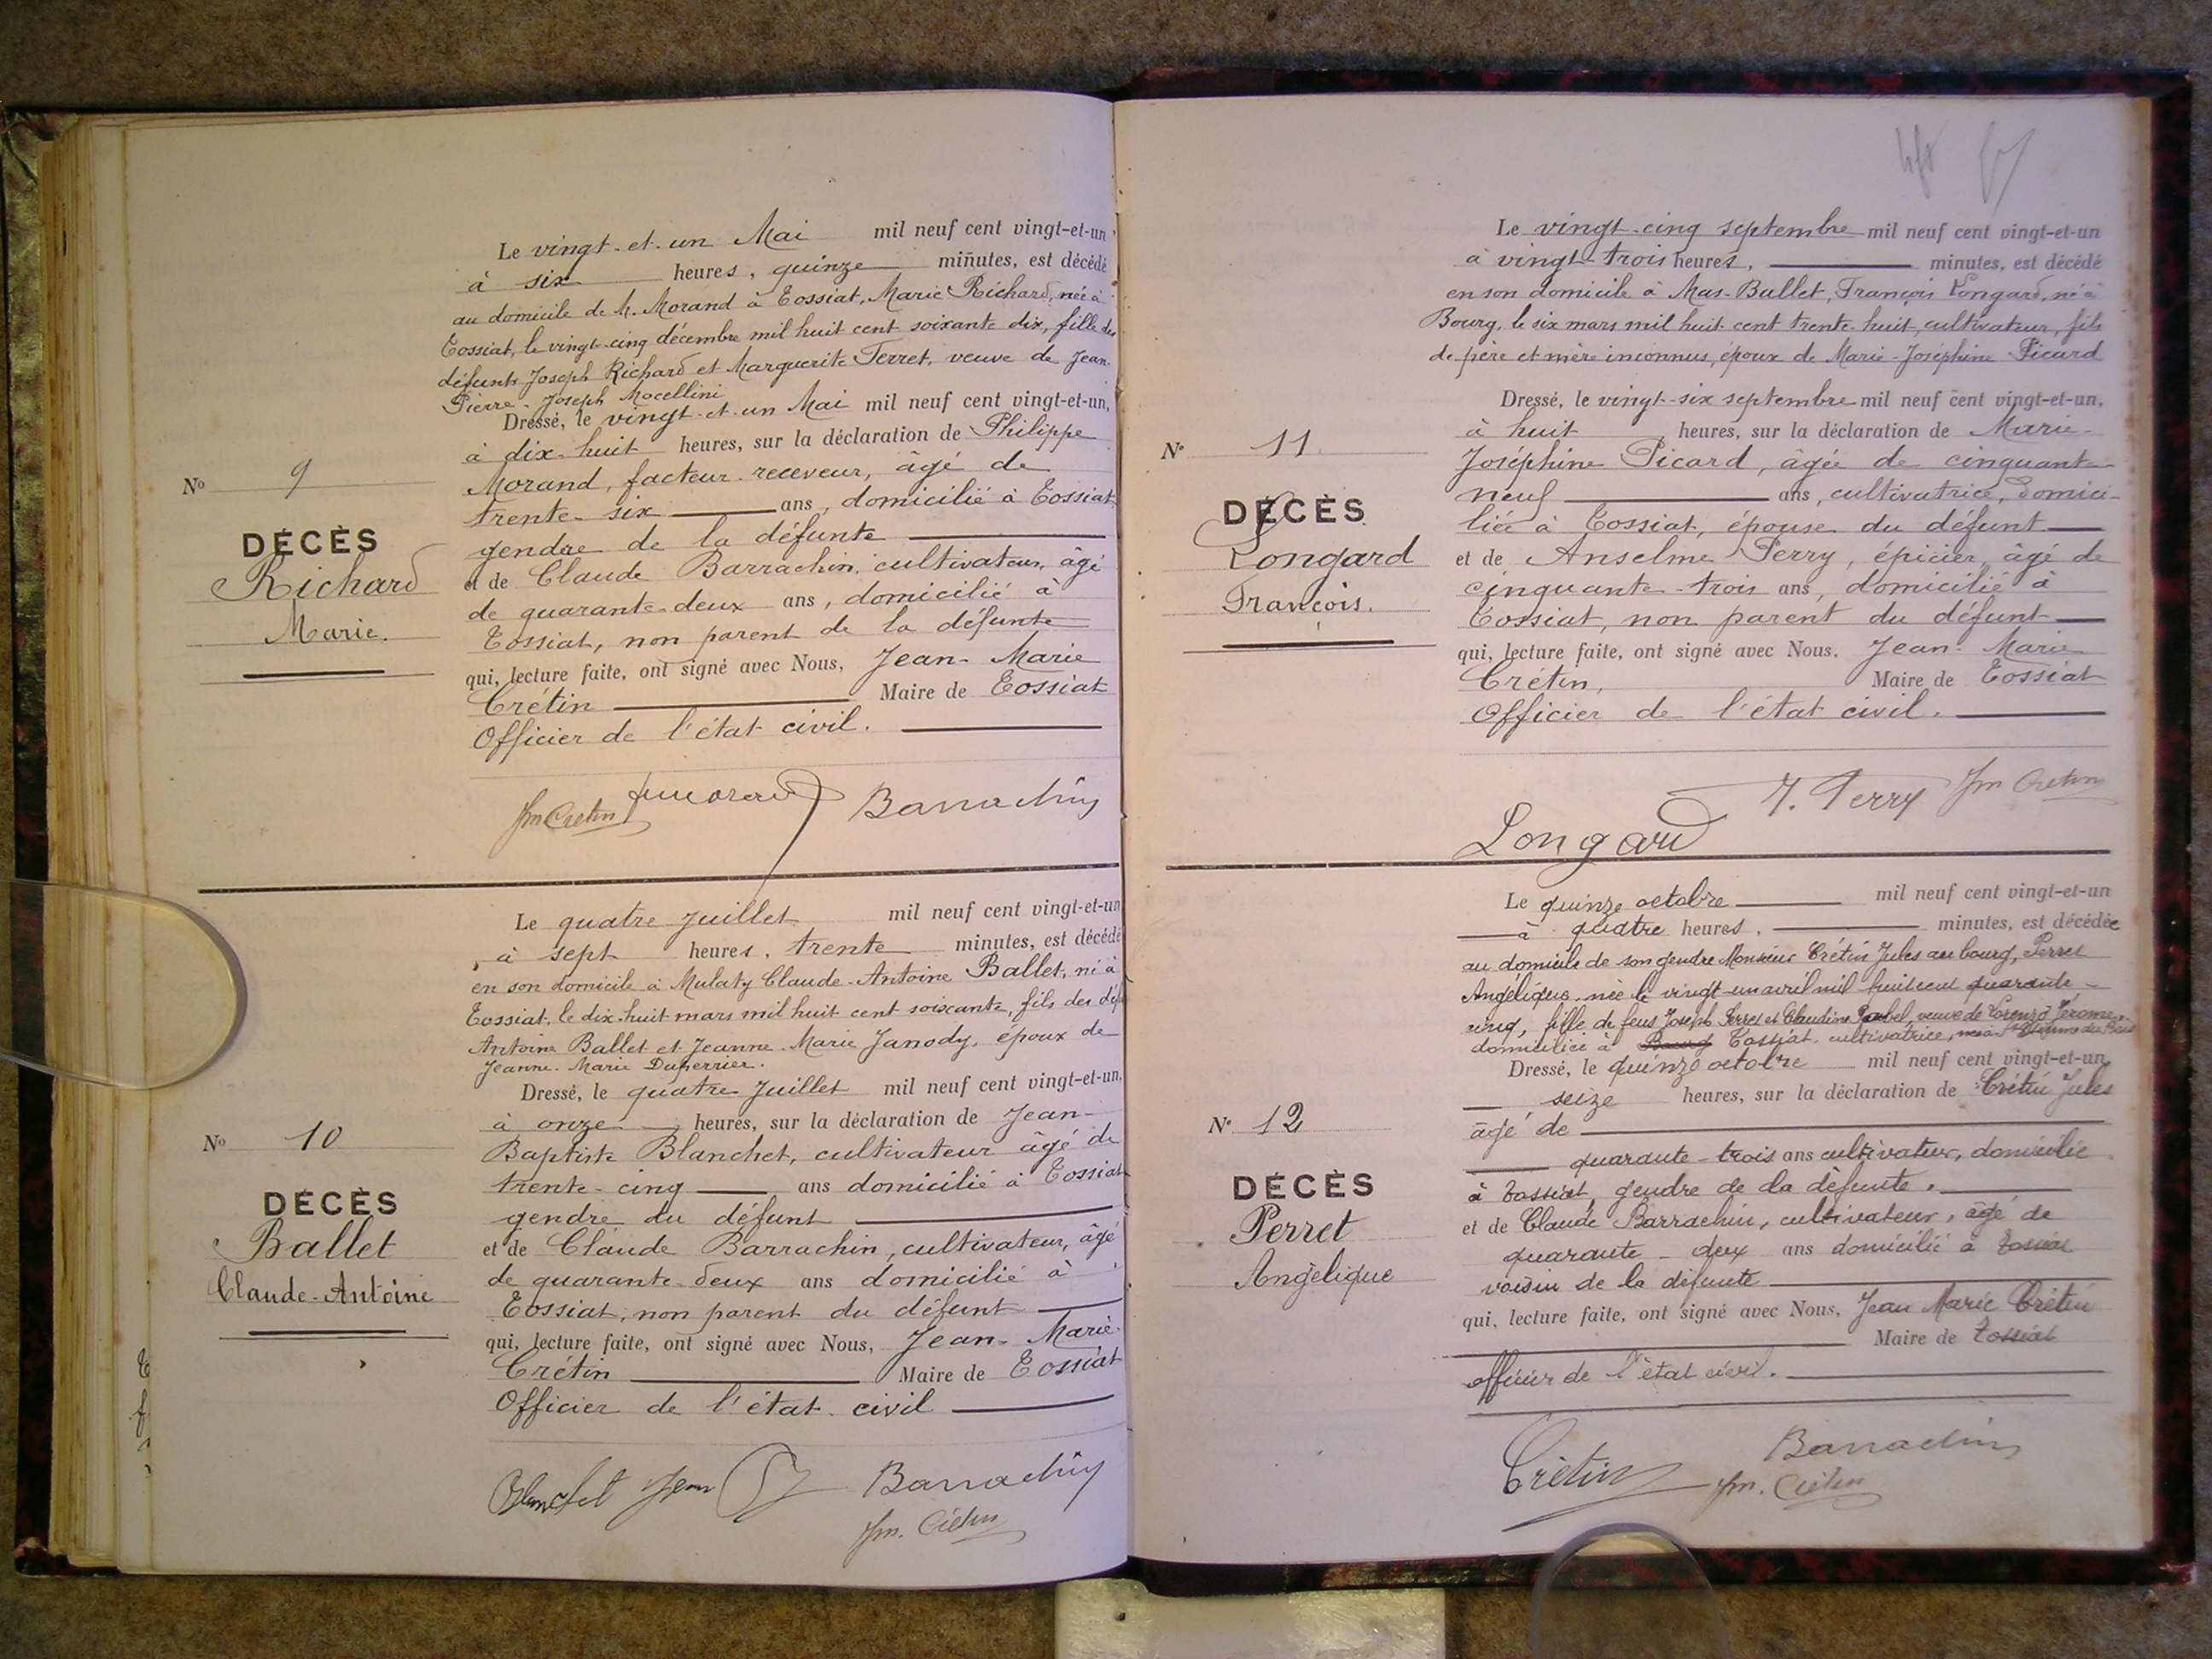 Le vingt-et-un Mai mil neuf cent vingt-et-un
à six heures, quinze minutes, est décédé
au domicile de M. Morand à Tossiat, Marie Richard, née à
Tossiat, le vingt-cinq décembre mil huit cent soixante dix, fille des
défunts Joseph Richard et Marguerite Ferret, veuve de Jean-
Pierre-Joseph Mocellini
Dressé, le vingt-et-un Mai mil neuf cent vingt-et-un,
à dix-huit heures, sur la déclaration de Philippe
Morand, facteur-receveur, âgé de
trente-six ans, domicilié à Tossiat
gendre de la défunte
et de Claude Barrachin, cultivateur, âgé
de quarante-deux ans, domicilié à
Tossiat, non parent de la défunte
qui, lecture faite, ont signé avec Nous, Jean-Marie
Crétin Maire de Tossiat
Officier de l'état civil.
No 9
DÉCÈS
Richard
Marie.
Jm Cretin Barrachin
Le quatre Juillet mil neuf cent vingt-et-un
à sept heures, trente minutes, est décédé
en son domicile à Mulaty Claude-Antoine Ballet, né à
Tossiat, le dix-huit mars mil huit cent soixante, fils des déf
Antoine Ballet et Jeanne-Marie Janody, époux de
Jeanne-Marie Duperrier.
Dressé, le quatre Juillet mil neuf cent vingt-et-un,
à onze heures, sur la déclaration de Jean-
Baptiste Blanchet, cultivateur âgé de
trente-cinq ans domicilié à Tossiat
gendre du défunt
et de Claude Barrachin, cultivateur, âgé
de quarante-deux ans domicilié à
Tossiat, non parent du défunt
qui, lecture faite, ont signé avec Nous, Jean-Marie
Crétin Maire de Tossiat
Officier de l'état civil
No 10
DÉCÈS
Ballet
Claude-Antoine
Blanchet Jean Barrachin
Jm. Crétin
Le vingt-cinq septembre mil neuf cent vingt-et-un
à vingt-trois heures, minutes, est décédé
en son domicile à Mas-Ballet, François Longard, né à
Bourg, le six mars mil huit cent trente-huit, cultivateur, fils
de père et mère inconnus, époux de Marie-Joséphine Picard
Dressé, le vingt-six septembre mil neuf cent vingt-et-un,
à huit heures, sur la déclaration de Marie-
Joséphine Picard, âgée de cinquante
neuf ans, cultivatrice, domici-
liée à Tossiat, épouse du défunt
et de Anselme Perry, épicier, âgé de
cinquante-trois ans, domicilié à
Tossiat, non parent du défunt
qui, lecture faite, ont signé avec Nous, Jean-Marie
Crétin, Maire de Tossiat
Officier de l'état civil.
No 11
DÉCÈS
Longard
François.
Longard Perry Jm Cretin
Le quinze octobre mil neuf cent vingt-et-un
à quatre heures, minutes, est décédée
au domicile de son gendre Monsieur Crétin Jules au bourg, Perret
Angélique, née le vingt-un avril mil huit cent quarante-
cinq, fille de feus Joseph Perret et Claudine, veuve de Lorenzo Jérome,
domiciliée à Bourg Tossiat, cultivatrice, née à St
Dressé, le quinze octobre mil neuf cent vingt-et-un,
seize heures, sur la déclaration de Crétin Jules
âgé de
quarante-trois ans cultivateur, domicilié
à Tossiat, gendre de la défunte.
et de Claude Barrachin, cultivateur, âgé de
quarante-deux ans domicilié à Tossiat
voisin de la défunte
qui, lecture faite, ont signé avec Nous, Jean Marie Crétin
Maire de Tossiat
officier de l'état civil.
No 12
DÉCÈS
Perret
Angélique
Crétin Barrachin
Jm. Crétin